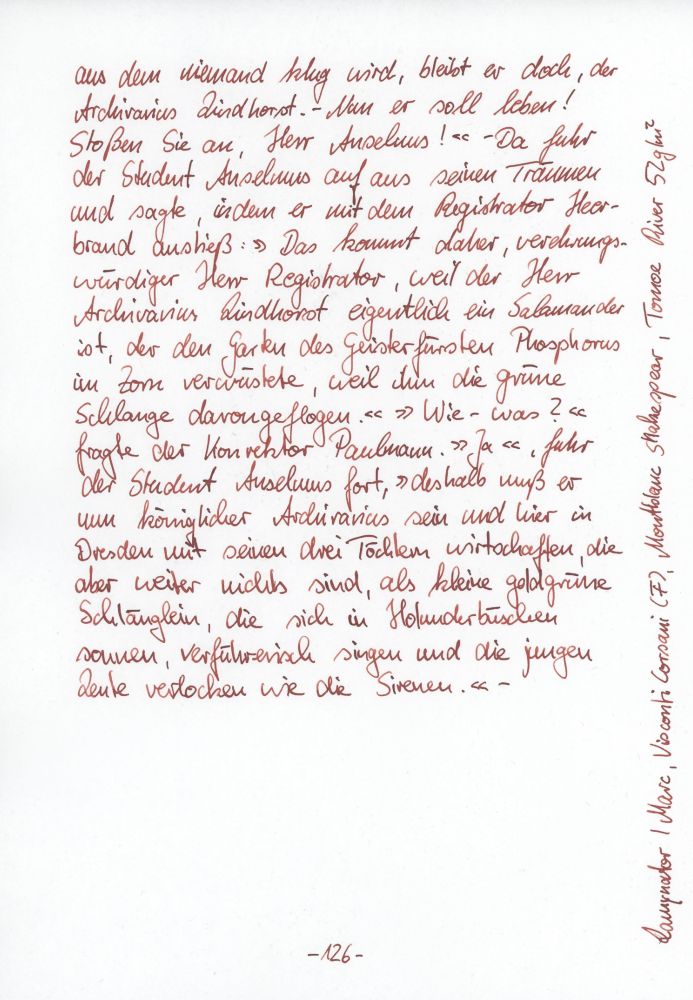 aus dem niemand klug wird, bleibt er doch, der
Archivarius Lindhorst. – Nun er soll leben!
Stoßen Sie an, Herr Anselmus! « – Da fuhr
der Student Anselmus auf aus seinen Träumen
und sagte, indem er mit dem Registrator Heer-
brand anstieß: » Das kommt daher, verehrungs-
würdiger Herr Registrator, weil der Herr
Archivarius Lindhorst eigentlich ein Salamander
ist, der den Garten des Geisterfürsten Phosphorus
im Zorn verwüstete, weil ihm die grüne
Schlange davongeflogen. « » Wie – was? «
fragte der Konrektor Paulmann. » Ja «, fuhr
der Student Anselmus fort, » deshalb muß er
nun königlicher Archivarius sein und hier in
Dresden mit seinen drei Töchtern wirtschaften, die
aber weiter nichts sind, als kleine goldgrüne
Schlänglein, die sich in Holunderbüschen
sonnen, verführerisch singen und die jungen
Leute verlocken wie die Sirenen. « –
- 126 -
/ Marc, Visconti Corsani (F), Montblanc Shakespear, Tomoe River 52g/m²